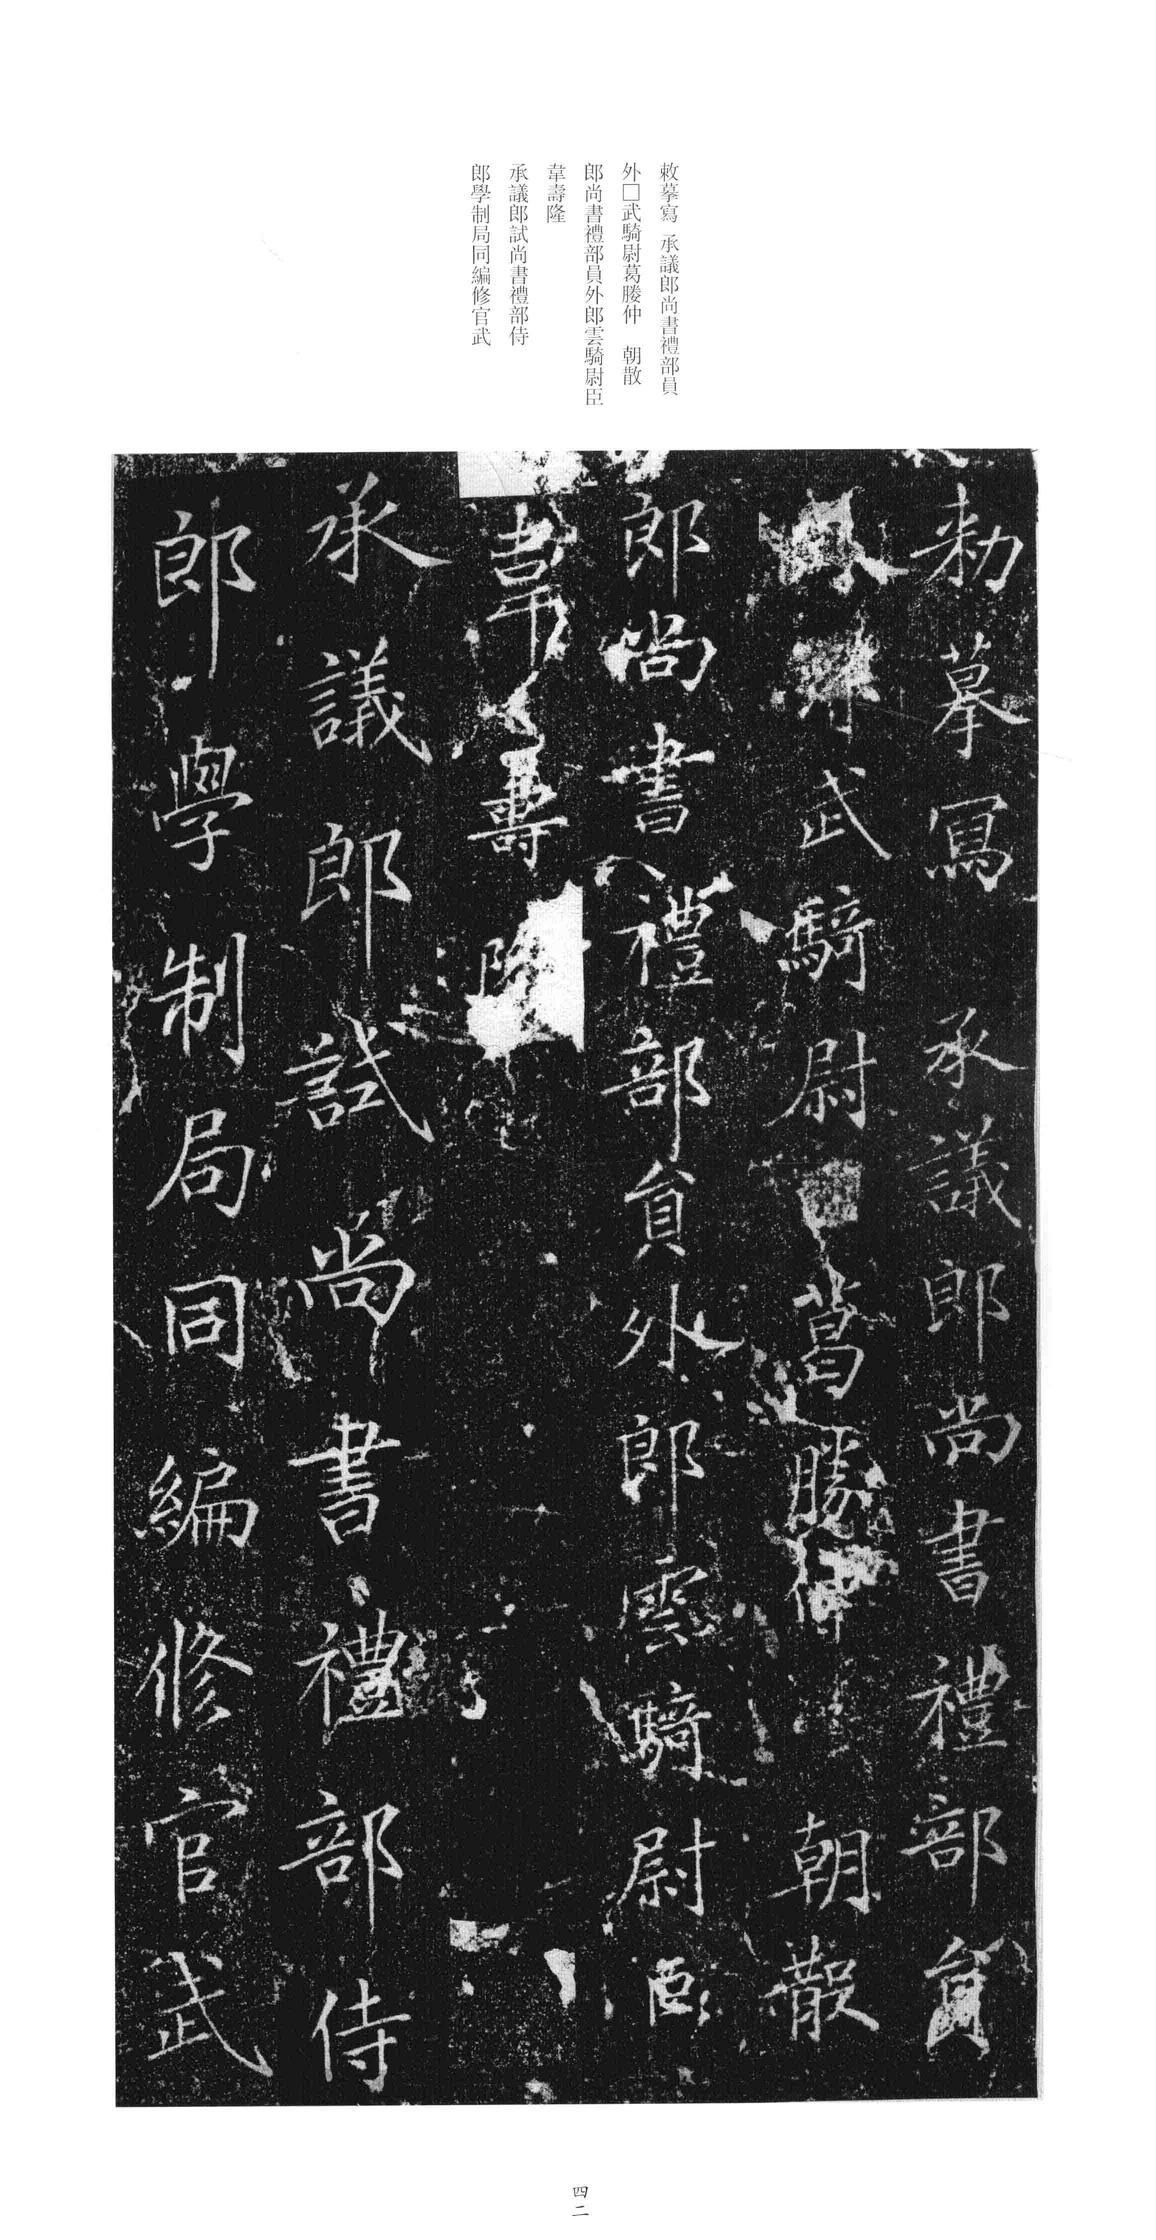 敕摹寫 承議郎尚書禮部員
外□武騎尉葛勝仲 朝散
郎尚書禮部員外郎雲騎尉臣
韋壽隆
承議郎試尚書禮部侍
郎學制局同編修官武
勑摹寫 承議郎尚書禮部員
武騎尉 葛勝仲 朝散
郎尚書禮部員外郎雲騎尉臣
韋壽隆
承議郎試尚書禮部侍
郎學制局同編修官武
四二